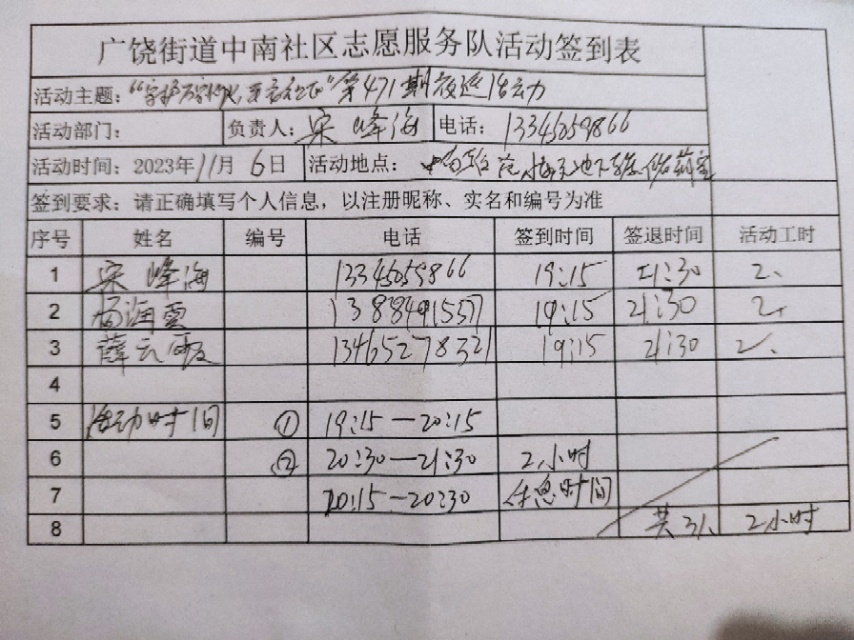 广饶街道中南社区志愿服务队活动签到表
活动主题：第471期夜巡活动
活动部门： 负责人：宋峰海 电话：13345059866
活动时间：2023年11月6日 活动地点：
签到要求：请正确填写个人信息，以注册昵称、实名和编号为准
序号 姓名 编号 电话 签到时间 签退时间 活动工时
1 宋峰海 13345059866 19:15 21:30 2、
2 杨海霞 13884915577 19:15 21:30 2、
3 薛云霞 13465278321 19:15 21:30 2、
4
5 活动时间 ① 19:15—20:15
6 ② 20:30—21:30 2小时
7 20:15—20:30 休息时间
8 共3人 2小时